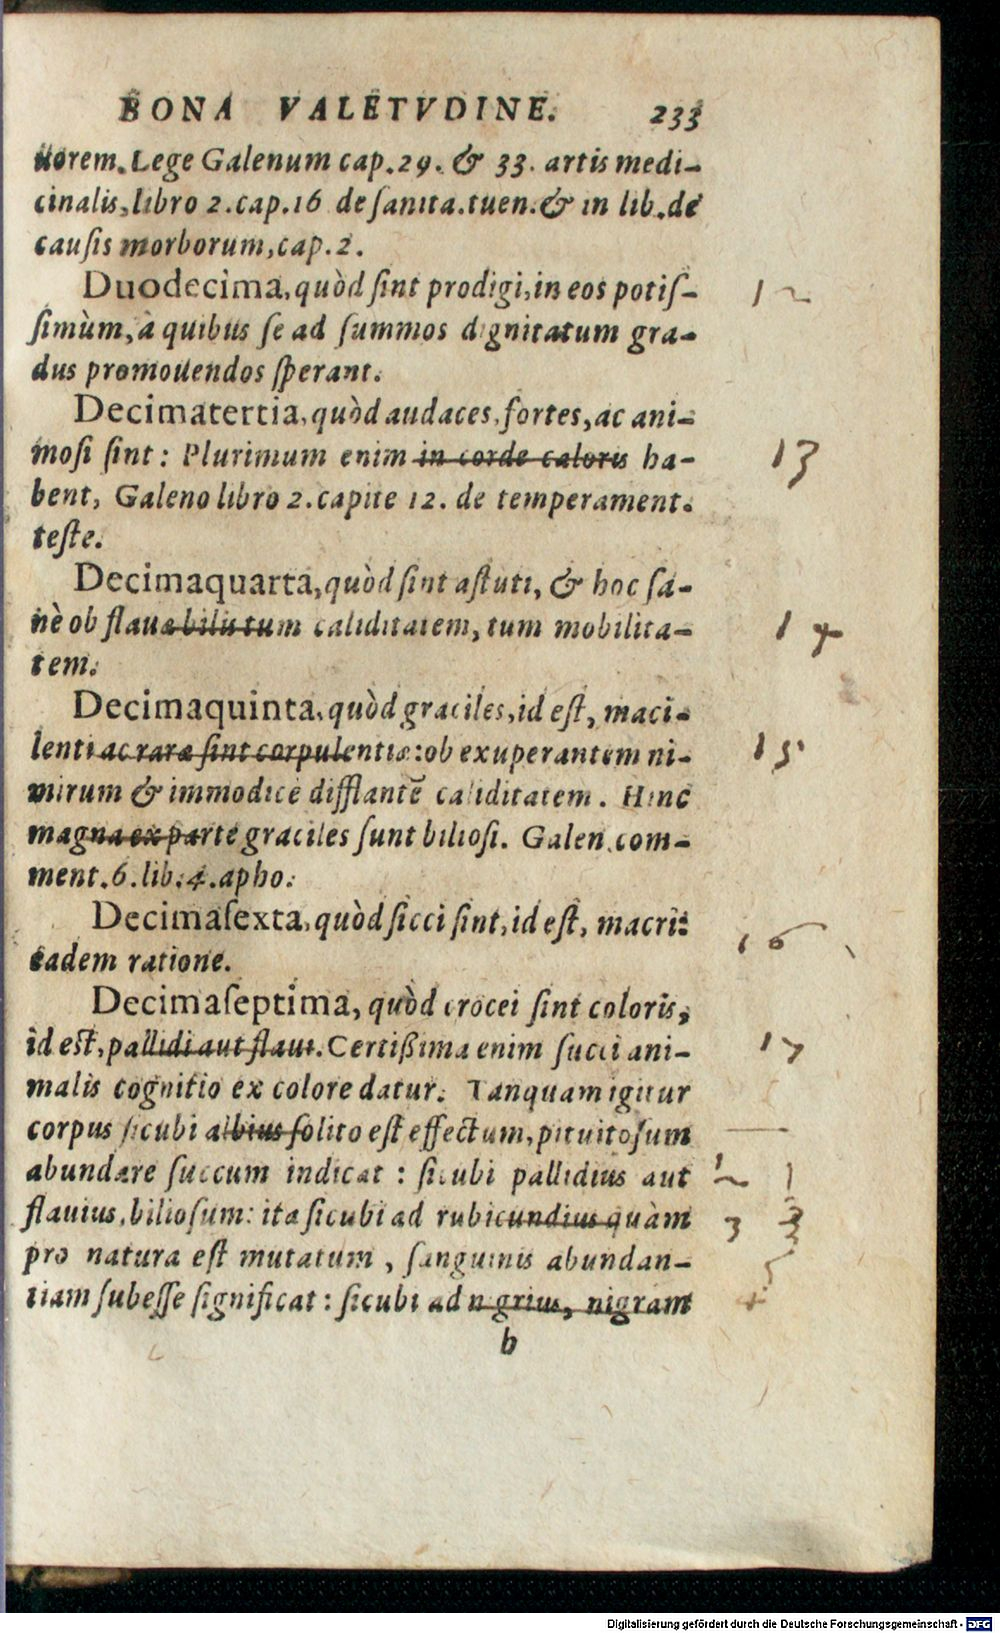 BONA VALETVDINE. 233
uorem. Lege Galenum cap. 29. & 33. artis medi-
cinalis, libro 2. cap. 16 de sanita. tuen. & in lib. de
causis morborum, cap. 2.
Duodecima, quòd sint prodigi, in eos potiſ-
ſimùm, à quibus ſe ad ſummos dignitatum gra-
dus promouendos ſperant.
12
Decimatertia, quòd audaces, fortes, ac ani-
moſi ſint: Plurimum enim in corde caloris ha-
bent, Galeno libro 2. capite 12. de temperament.
teſte.
13
Decimaquarta, quòd ſint aſtuti, & hoc ſa-
nè ob flauæ bilis tum caliditatem, tum mobilita-
tem.
14
Decimaquinta, quòd graciles, id eſt, maci-
lenti ac raræ ſint corpulentiæ: ob exuperantem ni-
mirum & immodicè difflantē caliditatem. Hinc
magna ex parte graciles ſunt bilioſi. Galen. com-
ment. 6. lib. 4. apho.
15
Decimaſexta, quòd ſicci ſint, id eſt, macri:
eadem ratione.
16
Decimaſeptima, quòd crocei ſint coloris,
id eſt, pallidi aut flaui. Certißima enim ſucci ani-
malis cognitio ex colore datur. Tanquam igitur
corpus ſicubi albius ſolito eſt effectum, pituitoſum
abundare ſuccum indicat: ſicubi pallidius aut
flauius, bilioſum: ita ſicubi ad rubicundius quàm
pro natura eſt mutatum, ſanguinis abundan-
tiam ſubeſſe ſignificat: ſicubi ad nigrius, nigram
17
b
Digitalisierung gefördert durch die Deutsche Forschungsgemeinschaft - DFG